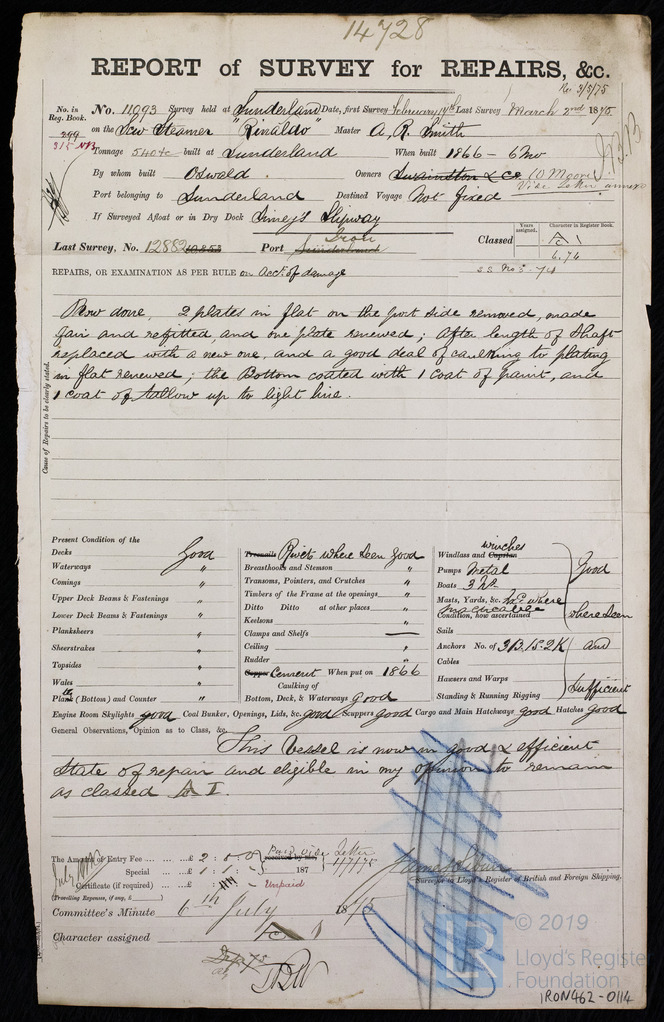 14728
REPORT of SURVEY for REPAIRS, &c.
Rec 3/5/75
No. in Reg. Book. No. 11093 Survey held at Sunderland Date, first Survey February 17th Last Survey March 2nd 1875
299 on the Scw Steamer "Rinaldo" Master A. R. Smith
315 Tonnage 540 built at Sunderland When built 1866 - 6 Mo
By whom built Oswald Owners Swainston & Co. (O Moore Vide letter annexed
Port belonging to Sunderland Destined Voyage Not fixed
If Surveyed Afloat or in Dry Dock Slipway
Iron
Last Survey, No. 12882 10853 Port Sunderland Classed Years assigned. Character in Register Book. A 1
6.74
REPAIRS, OR EXAMINATION AS PER RULE on Acct. of damage S.S. No 3 - 74
Now done, 2 plates in flat on the port side removed, made
fair and refitted, and one plate renewed; after length of Shaft
replaced with a new one, and a good deal of caulking to plating
in flat renewed; the Bottom coated with 1 coat of paint, and
1 coat of tallow up to light line.
Cause of Repairs to be clearly stated.
Present Condition of the
Decks Good
Waterways "
Comings "
Upper Deck Beams & Fastenings "
Lower Deck Beams & Fastenings "
Planksheers "
Sheerstrakes "
Topsides "
Wales "
Plank (Bottom) and Counter "
Treenails Rivets where seen Good
Breasthooks and Stemson "
Transoms, Pointers, and Crutches "
Timbers of the Frame at the openings "
Ditto Ditto at other places "
Keelsons "
Clamps and Shelfs —
Ceiling "
Rudder "
Copper Cement When put on 1866
Caulking of
Bottom, Deck, & Waterways Good
winches
Windlass and Capstan Good
Pumps Metal
Boats 3
Masts, Yards, &c. where
Condition, how ascertained where seen
Sails
Anchors No. of 3B. 1S. 2K and
Cables
Hawsers and Warps
Standing & Running Rigging Sufficient
Engine Room Skylights good Coal Bunker, Openings, Lids, &c. good Scuppers good Cargo and Main Hatchways good Hatches Good
General Observations, Opinion as to Class, &c.
This Vessel is now in good & efficient
state of repair and eligible in my opinion to remain
as classed A I.
The Amount of Entry Fee ... ... £ 2 : 0 : 0 received by me, Paid vide Letter
Special ... ... £ 1 : 1 : 187
Certificate (if required) ... £ Unpaid
(Travelling Expenses, if any, £ )
Surveyor to Lloyd's Register of British and Foreign Shipping.
Committee's Minute 6th July 1875
Character assigned A 1
© 2019
Lloyd's Register
Foundation
IRON462-0114